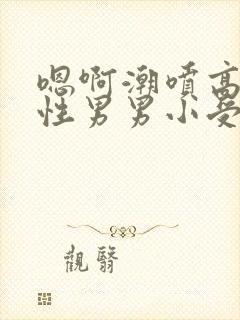 嗯啊潮喷高
性男男小受
觀翳